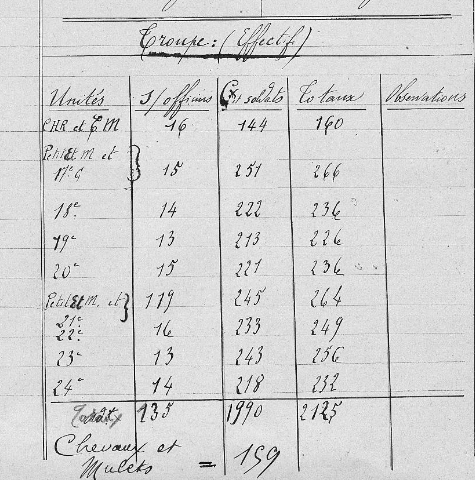 Troupe: (Effectif)
Unités S/officiers Cx et soldats Totaux Observations
CHR et C M 16 144 160
Petit Et M et
17e C 15 251 266
18e 14 222 236
19e 13 213 226
20e 15 221 236
Petit Et M, et 119 245 264
21e
22e 16 233 249
23e 13 243 256
24e 14 218 232
135 1990 2125
Chevaux et
Mulets = 159